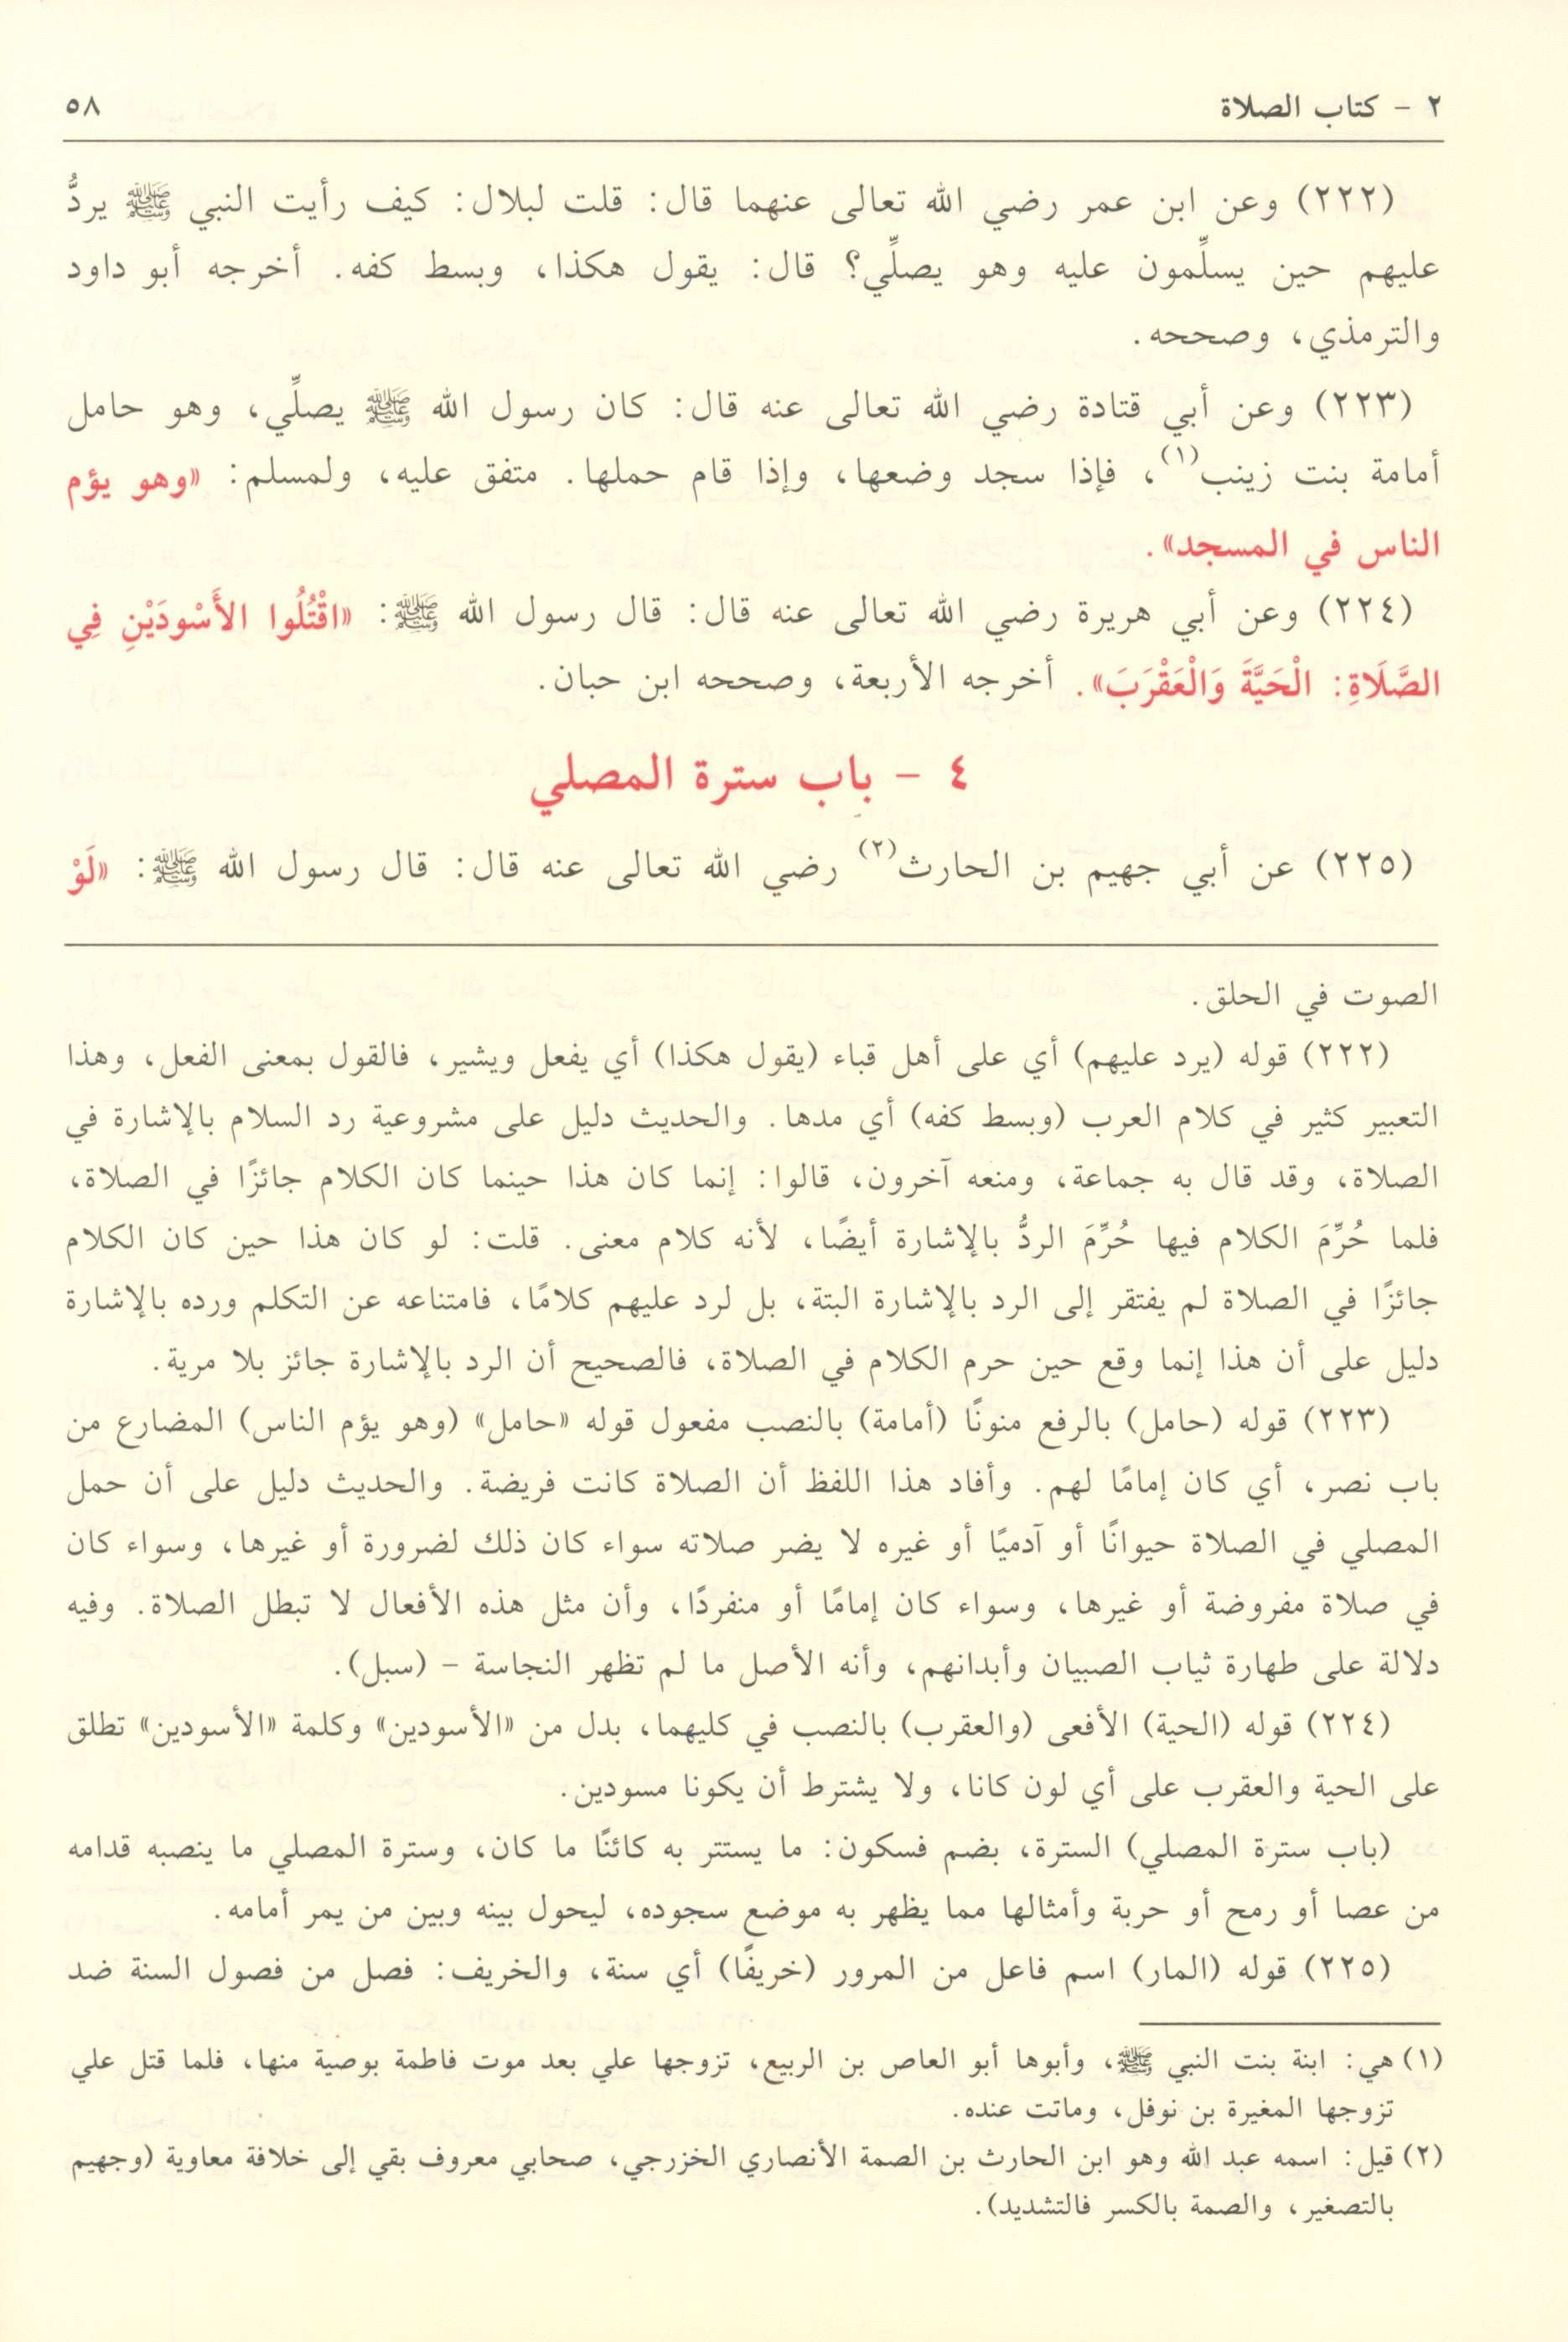 ٢ - كتاب الصلاة
٥٨
(٢٢٢) وعن ابن عمر رضي الله تعالى عنهما قال: قلت لبلال: كيف رأيت النبي ﷺ يردُّ
عليهم حين يسلِّمون عليه وهو يصلِّي؟ قال: يقول هكذا، وبسط كفه. أخرجه أبو داود
والترمذي، وصححه.
(٢٢٣) وعن أبي قتادة رضي الله تعالى عنه قال: كان رسول الله ﷺ يصلِّي، وهو حامل
أمامة بنت زينب(١)، فإذا سجد وضعها، وإذا قام حملها. متفق عليه، ولمسلم: «وهو يؤم
الناس في المسجد».
(٢٢٤) وعن أبي هريرة رضي الله تعالى عنه قال: قال رسول الله ﷺ: «اقْتُلُوا الأَسْودَيْنِ فِي
الصَّلَاةِ: الْحَيَّةَ وَالْعَقْرَبَ». أخرجه الأربعة، وصححه ابن حبان.
٤ - باب سترة المصلي
(٢٢٥) عن أبي جهيم بن الحارث(٢) رضي الله تعالى عنه قال: قال رسول الله ﷺ: «لَوْ
الصوت في الحلق.
(٢٢٢) قوله (يرد عليهم) أي على أهل قباء (يقول هكذا) أي يفعل ويشير، فالقول بمعنى الفعل، وهذا
التعبير كثير في كلام العرب (وبسط كفه) أي مدها. والحديث دليل على مشروعية رد السلام بالإشارة في
الصلاة، وقد قال به جماعة، ومنعه آخرون، قالوا: إنما كان هذا حينما كان الكلام جائزًا في الصلاة،
فلما حُرِّمَ الكلام فيها حُرِّمَ الردُّ بالإشارة أيضًا، لأنه كلام معنى. قلت: لو كان هذا حين كان الكلام
جائزًا في الصلاة لم يفتقر إلى الرد بالإشارة البتة، بل لرد عليهم كلامًا، فامتناعه عن التكلم ورده بالإشارة
دليل على أن هذا إنما وقع حين حرم الكلام في الصلاة، فالصحيح أن الرد بالإشارة جائز بلا مرية.
(٢٢٣) قوله (حامل) بالرفع منونًا (أمامة) بالنصب مفعول قوله «حامل» (وهو يؤم الناس) المضارع من
باب نصر، أي كان إمامًا لهم. وأفاد هذا اللفظ أن الصلاة كانت فريضة. والحديث دليل على أن حمل
المصلي في الصلاة حيوانًا أو آدميًا أو غيره لا يضر صلاته سواء كان ذلك لضرورة أو غيرها، وسواء كان
في صلاة مفروضة أو غيرها، وسواء كان إمامًا أو منفردًا، وأن مثل هذه الأفعال لا تبطل الصلاة. وفيه
دلالة على طهارة ثياب الصبيان وأبدانهم، وأنه الأصل ما لم تظهر النجاسة - (سبل).
(٢٢٤) قوله (الحية) الأفعى (والعقرب) بالنصب في كليهما، بدل من «الأسودين» وكلمة «الأسودين» تطلق
على الحية والعقرب على أي لون كانا، ولا يشترط أن يكونا مسودين.
(باب سترة المصلي) السترة، بضم فسكون: ما يستتر به كائنًا ما كان، وسترة المصلي ما ينصبه قدامه
من عصا أو رمح أو حربة وأمثالها مما يظهر به موضع سجوده، ليحول بينه وبين من يمر أمامه.
(٢٢٥) قوله (المار) اسم فاعل من المرور (خريفًا) أي سنة، والخريف: فصل من فصول السنة ضد
(١) هي: ابنة بنت النبي ﷺ، وأبوها أبو العاص بن الربيع، تزوجها علي بعد موت فاطمة بوصية منها، فلما قتل علي
تزوجها المغيرة بن نوفل، وماتت عنده.
(٢) قيل: اسمه عبد الله وهو ابن الحارث بن الصمة الأنصاري الخزرجي، صحابي معروف بقي إلى خلافة معاوية (وجهيم
بالتصغير، والصمة بالكسر فالتشديد).